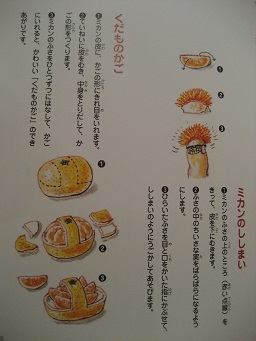 ミカンのししまい
❶ミカンのふさの上のところ（赤い点線）を
きって、皮を下にむきます。
❷ふさの中のちいさな実をばらばらになるよう
にします。
❸ひらいたふさを目と口をかいた指にかぶせて、
ししまいのようにうごかしてあそびます。
❶
❷
❸
くだものかご
❶ミカンの皮に、かごの形にきれ目をいれます。
❷ていねいに皮をむき、中身をとりだして、か
ごの形をつくります。
❸ミカンのふさをひとつずつにはなして、かご
にいれると、かわいい「くだものかご」のでき
あがりです。
❶
❷
❸